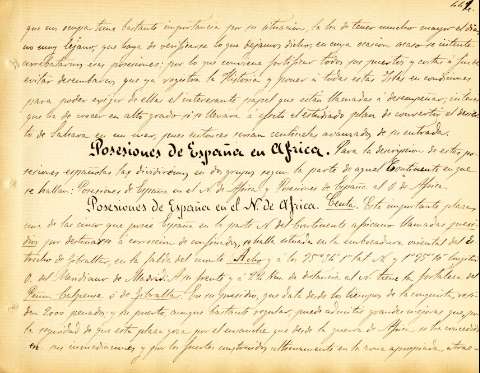 449.
que no sea y a tiene bastante importancia por su situacion, la ha de tener mucho mayor el dia,
no muy lejano, que haya de verificarse lo que dejamos dicho, en cuya ocasion acaso se intente
arrebatarnos esas posesiones; por lo que conviene fortificar todos sus puertos y costas a fin de
evitar desembarcos que ya registra la Historia y poner a todas estas Islas en condiciones
para poder exigir de ellas el interesante papel que están llamadas á desempeñar; interes
que ha de crecer en alto grado si se llevara á efecto el estudiado plan de convertir el desier-
to de Sahara en un mar, pues entonces serian centinelas avanzados de su entrada.
Posesiones de España en Africa. Para la descripcion de estas po-
sesiones españolas las dividiremos en dos grupos segun la parte de aquel Continente en que
se hallan: Posesiones de España en el N. de Africa y Posesiones de España al O. de Africa.
Posesiones de España en el N. de Africa. Ceuta. Esta importante plaza,
una de las cinco que posee España en la parte N. del Continente africano llamadas presi-
dios por destinarse a correccion de confinados, se halla situada en la embocadura oriental del Es-
trecho de Gibraltar, en la falda del monte Acho, á los 35° 54' lat. N. y 1° 35' longitud
O. del Meridiano de Madrid. A su frente y á 24 Km. de distancia tiene la fortaleza del
Penon Calpense, ó de Gibraltar. En su presidio, que data desde los tiempos de la conquista, resi-
den 2000 penados, y su puerto aunque bastante regular, puede admitir grandes mejoras que, con
la seguridad de que esta plaza goza por el ensanche que desde la guerra de Africa se ha concedido
en sus inmediaciones y por los fuertes construidos ultimamente en la zona apropiada,